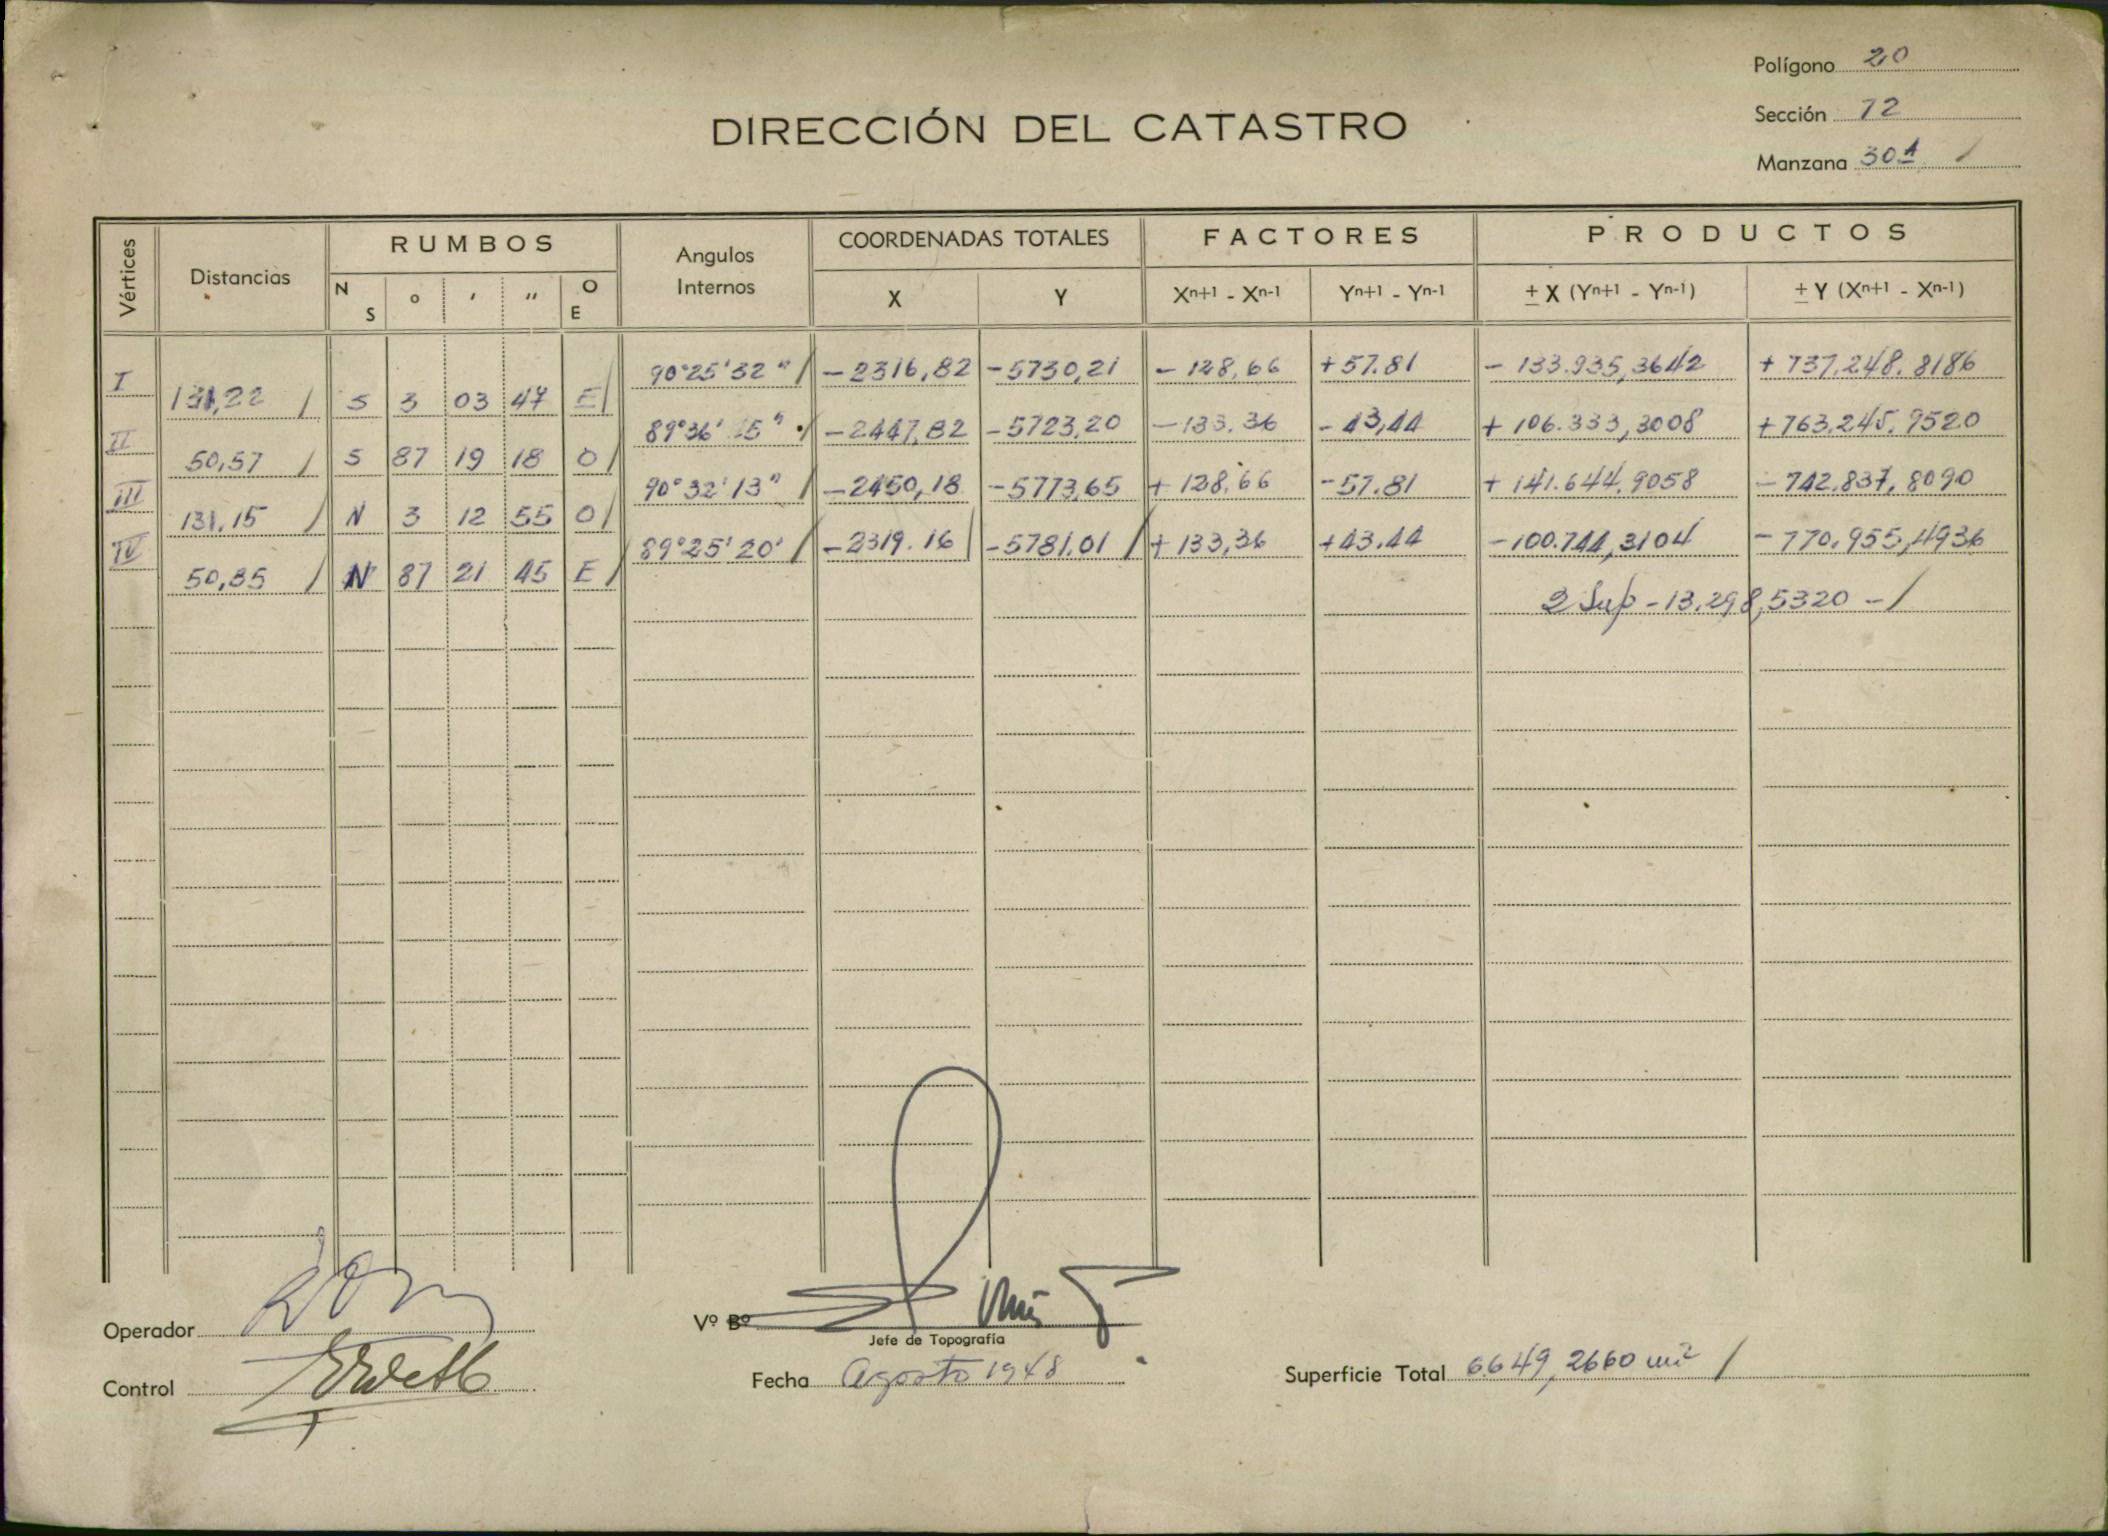 Polígono 20
Sección 72
Manzana 30A /
DIRECCIÓN DEL CATASTRO
Vértices Distancias RUMBOS Angulos Internos COORDENADAS TOTALES FACTORES PRODUCTOS
N S ° ' " O E X Y Xn+1 - Xn-1 Yn+1 - Yn-1 ± X (Yn+1 - Yn-1) ± Y (Xn+1 - Xn-1)
I 90°25'32" / -2316,82 -5730,21 -128,66 +57.81 -133.935,3642 +737.248.8186
131,22 / S 3 03 47 E /
II 89°36'55" / -2447,82 -5723,20 -133.36 -43,44 +106.333,3008 +763.245.9520
50,57 / S 87 19 18 O /
III 90°32'13" / -2450,18 -5773,65 +128,66 -57.81 +141.644.9058 -742.837,8090
131.15 / N 3 12 55 O /
IV 89°25'20" / -2319.16 / -5781,01 / +133,36 +43.44 -100.744,3104 -770.955,4936
50,85 / N 87 21 45 E /
2 Sup - 13.298,5320 - /
Operador
Vº Bº
Jefe de Topografía
Control
Fecha Agosto 1948
Superficie Total 6649,2660 m² /